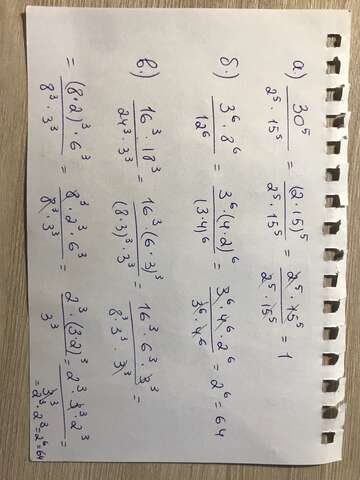 а.) 30⁵ / 2⁵ · 15⁵ = (2 · 15)⁵ / 2⁵ · 15⁵ = 2⁵ · 15⁵ / 2⁵ · 15⁵ = 1
б.) 3⁶ · 8⁶ / 12⁶ = 3⁶ (4 · 2)⁶ / (3 · 4)⁶ = 3⁶ · 4⁶ · 2⁶ / 3⁶ · 4⁶ = 2⁶ = 64
в.) 16³ · 18³ / 24³ · 3³ = 16³ · (6 · 3)³ / (8 · 3)³ · 3³ = 16³ · 6³ · 3³ / 8³ 3³ · 3³ =
= (8 · 2)³ · 6³ / 8³ · 3³ = 8³ · 2³ · 6³ / 8³ · 3³ = 2³ · (3 · 2)³ / 3³ = 2³ · 3³ · 2³ / 3³ =
= 2³ · 2³ = 2⁶ = 64